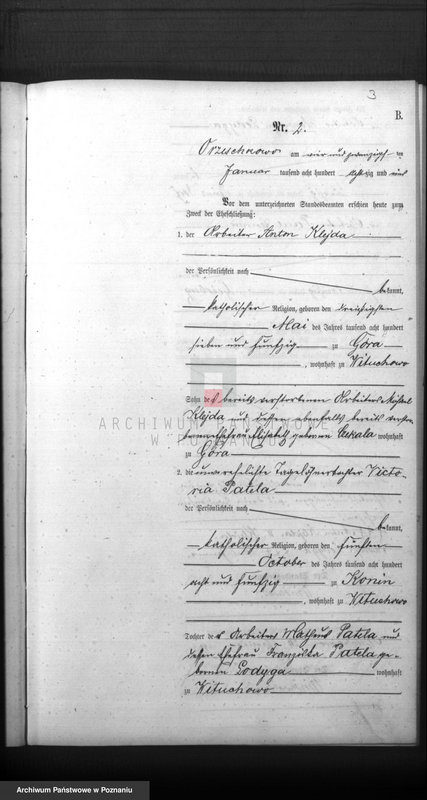 3
B.
Nr. 2.
Orzeschkowo am vier und zwanzigsten
Januar tausend acht hundert achtzig und vier
Vor dem unterzeichneten Standesbeamten erschien heute zum
Zweck der Eheschließung:
1. der Arbeiter Anton Klejda
der Persönlichkeit nach
bekannt,
katholischer Religion, geboren den dreißigsten
Mai des Jahres tausend acht hundert
sieben und fünfzig zu Góra
, wohnhaft zu Wituchowo
Sohn des bereits verstorbenen Arbeiters
Klejda und dessen ebenfalls bereits verstor-
benen Ehefrau Elisabeth geborenen wohnhaft
zu Góra
2. die unverehelichte Tagelöhnertochter Victo-
ria Patela
der Persönlichkeit nach
bekannt,
katholischer Religion, geboren den fünften
October des Jahres tausend acht hundert
acht und fünfzig zu Konin
, wohnhaft zu Wituchowo
Tochter des Arbeiters Matheus Patela und
dessen Ehefrau Franziska Patela ge-
bornen Lodyga wohnhaft
zu Wituchowo
ARCHIWUM PAŃSTWOWE
W POZNANIU
Archiwum Państwowe w Poznaniu